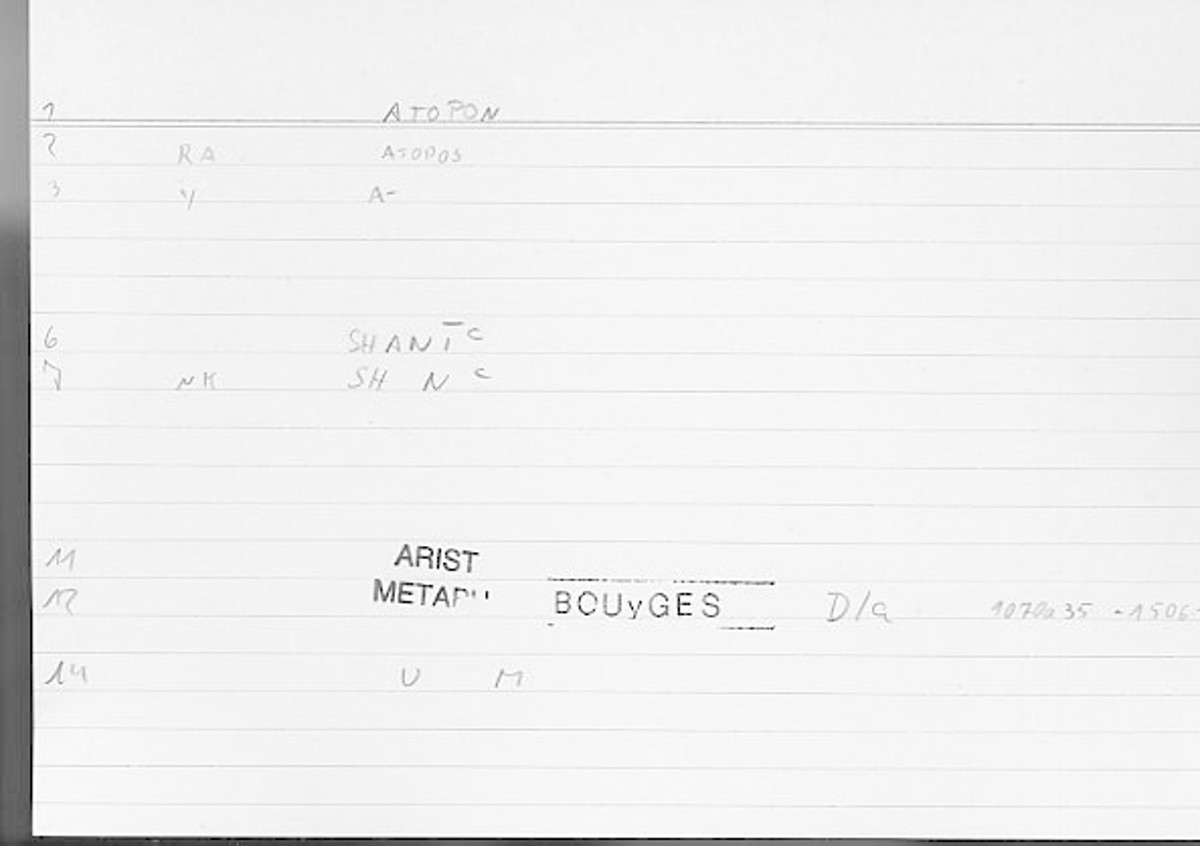 1 ATOPON
2 RA ATOPOS
3 Y A-
6 SHANĪ c
7 NK SH N c
11 ARIST
12 METAPH BOUyGES D/a 1070a35 -1506-
14 U M